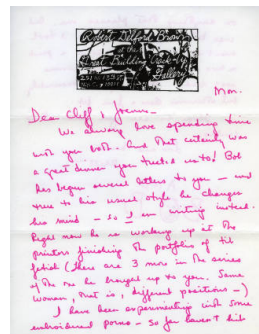 Robert Delford Brown
at the
Great Building Crack-Up
Gallery
251 W. 13 St.
Mon.
Dear Cliff & Joann –
We always love spending time
with you both. And that certainly was
a great dinner you treated us to! Bob
has begun several letters to you – and
true to his usual style he changes
his mind – so I am writing instead.
Right now he is working up at the
printers finishing the portfolio of tit
fetish (there are 3 more in the series
of the one he brought up to you. Same
woman, that is, different positions –)
I have been experimenting with some
embroidered porno – So far haven't